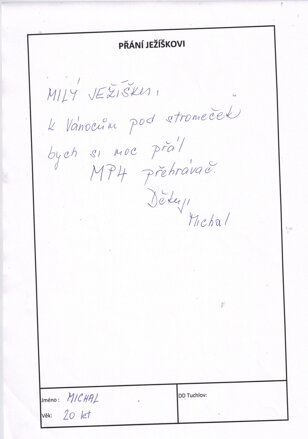 PŘÁNÍ JEŽÍŠKOVI
MILÝ JEŽÍŠKU,
k Vánocům pod stromeček
bych si moc přál
MP4 přehrávač.
Děkuji
Michal
Jméno: MICHAL
DD Tuchlov:
Věk: 20 let